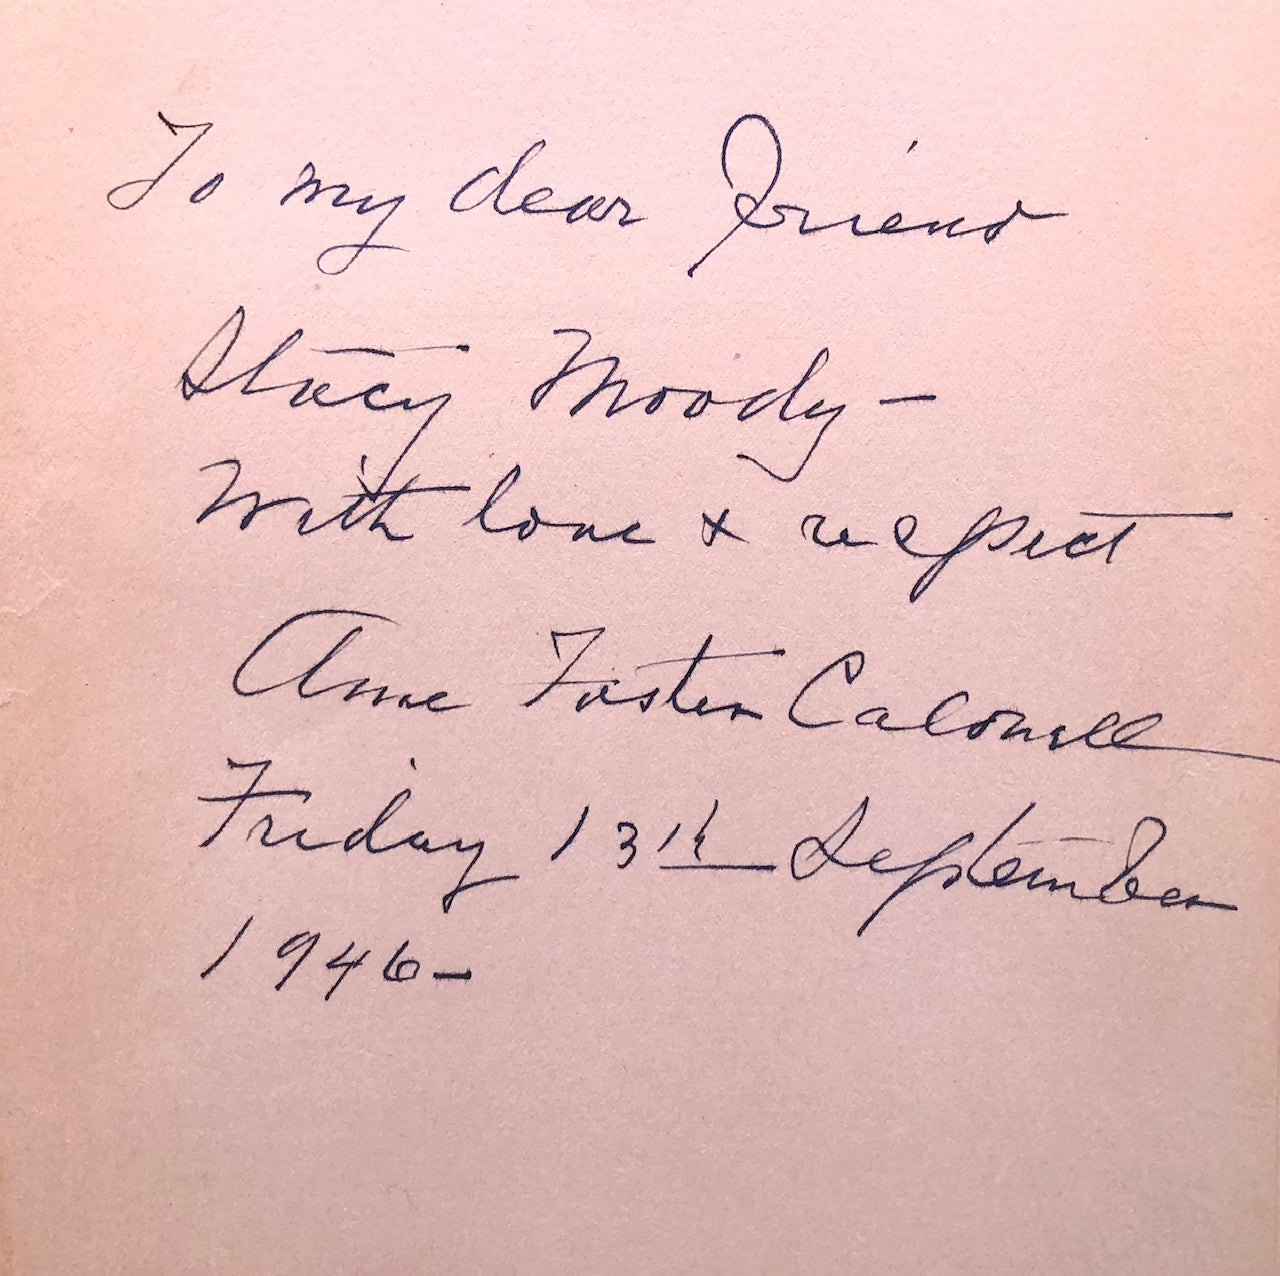 To my dear Friend
Stacy Moody –
With love & respect
Anne Foster Caldwell
Friday 13th September
1946 –